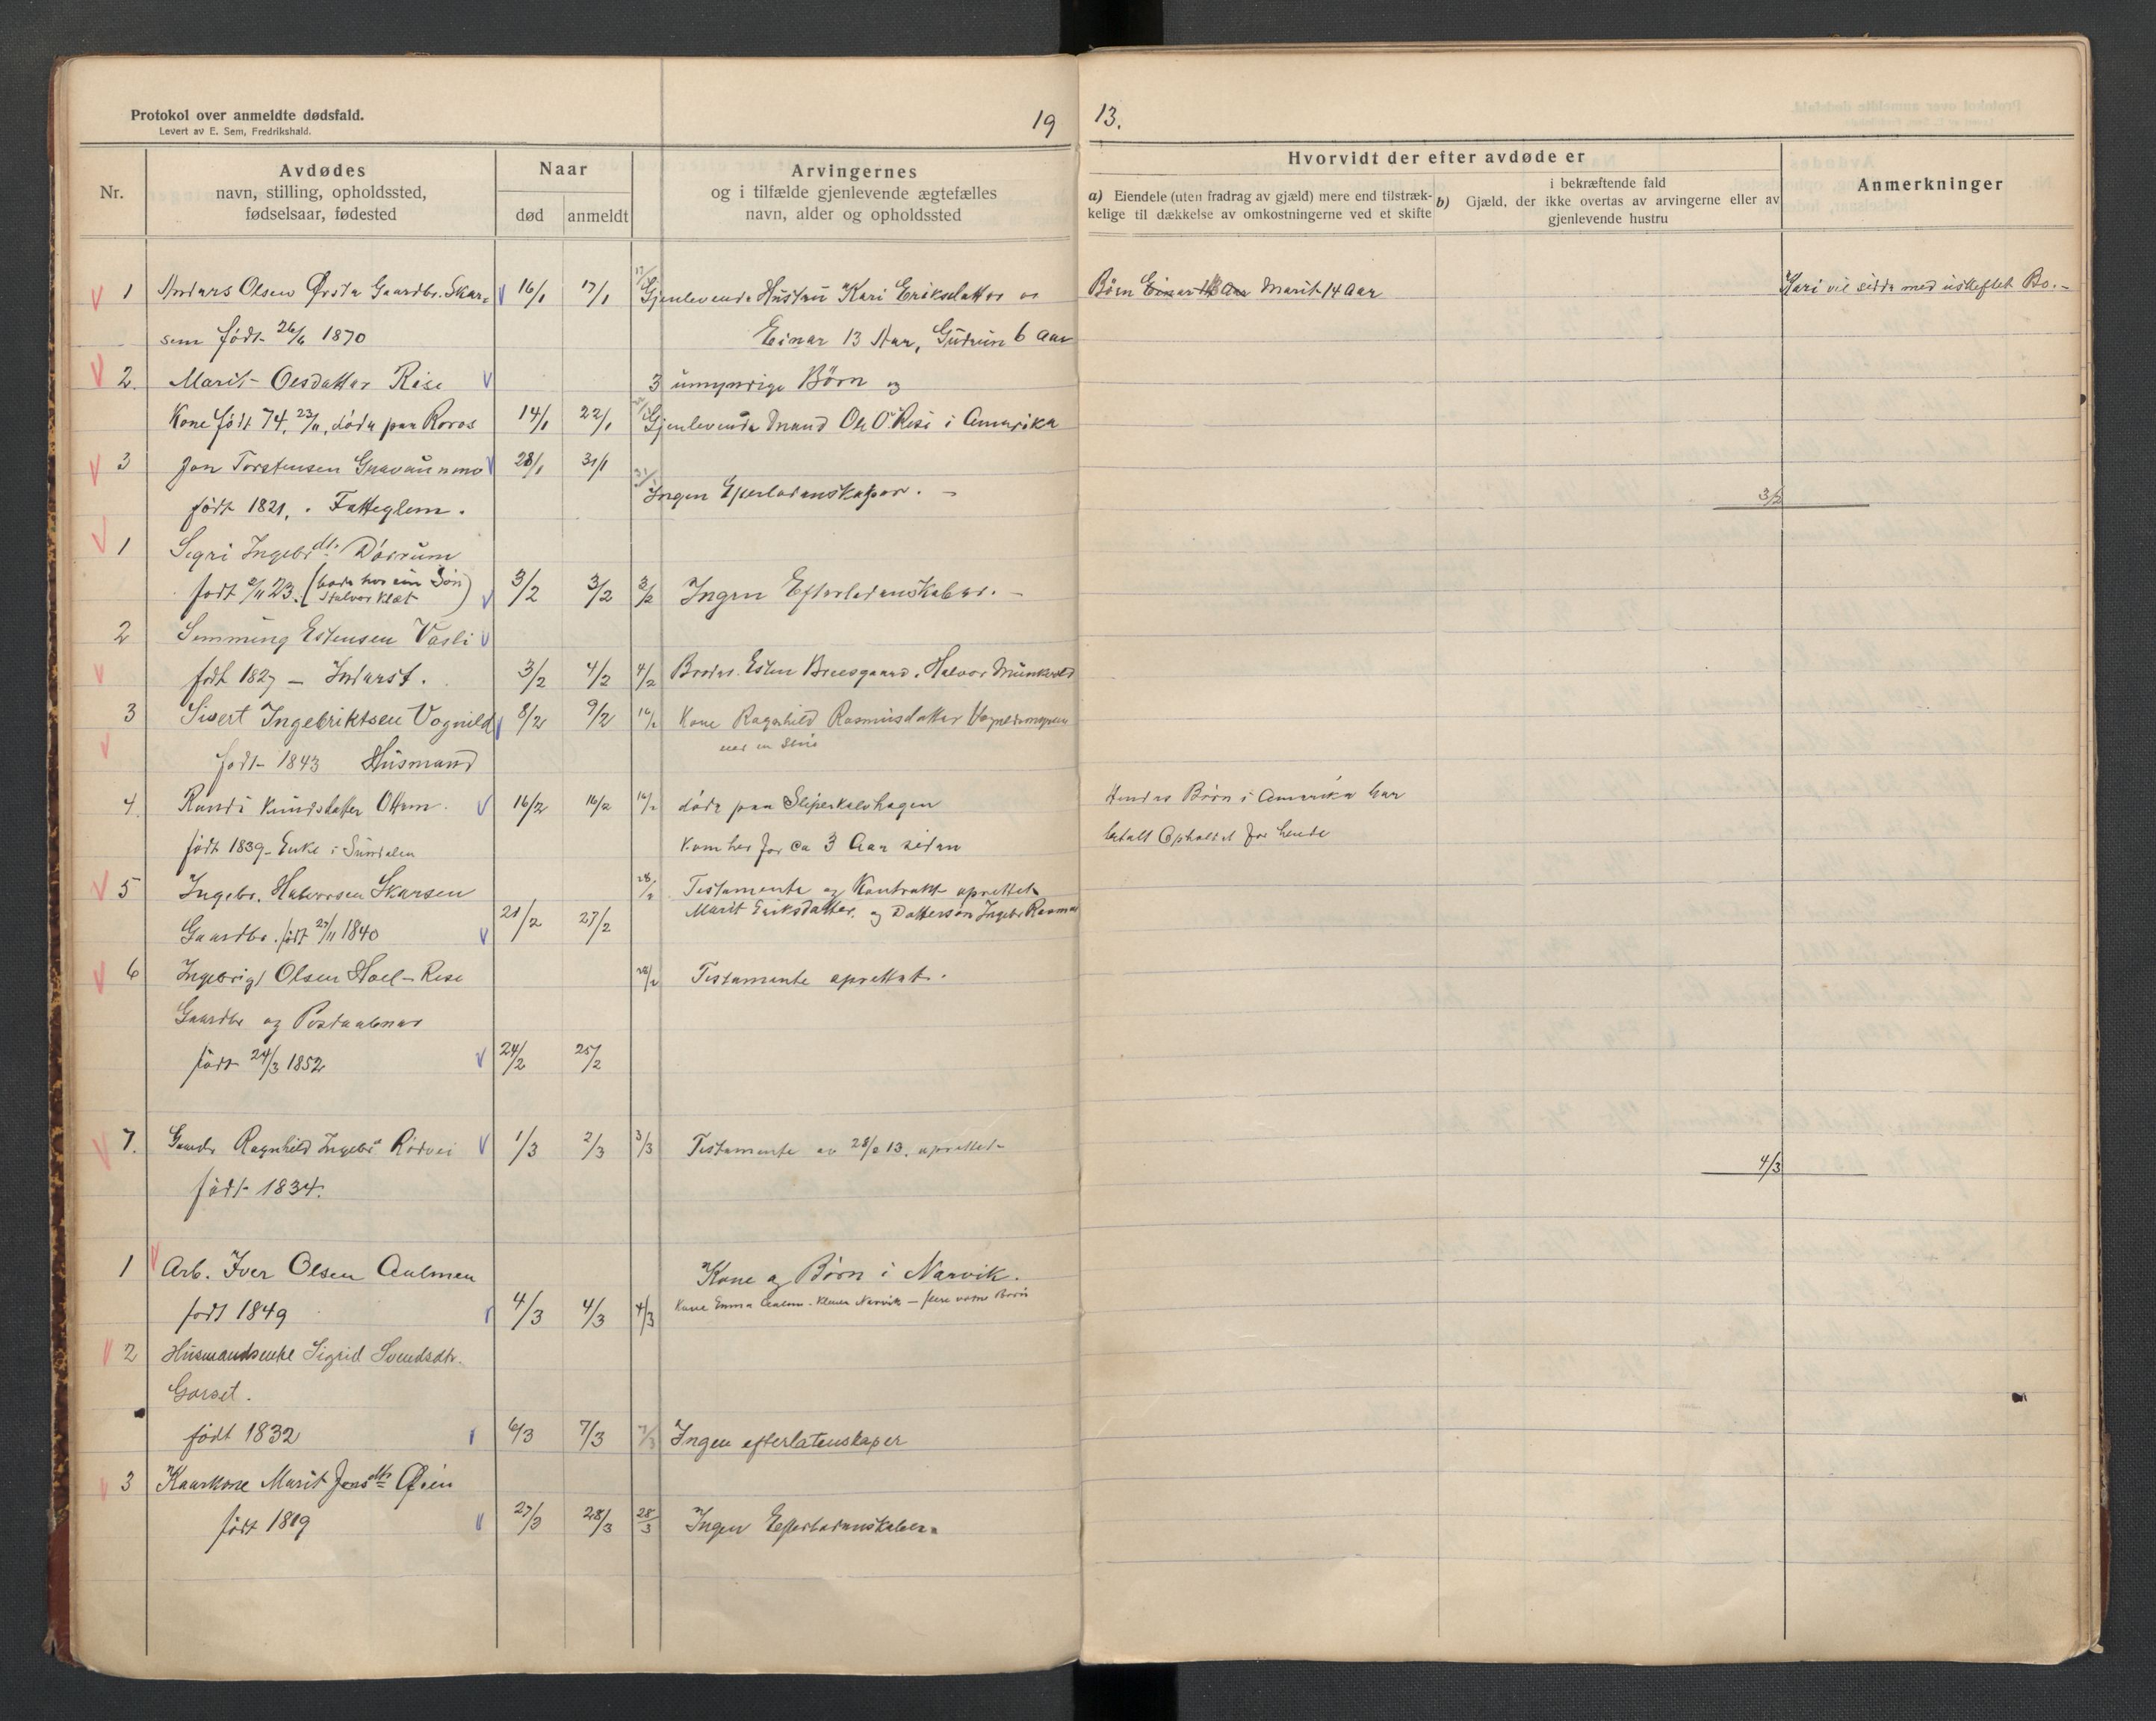 Protokol over anmeldte dødsfald.
Levert av E. Sem, Fredrikshald.
19 13.
Nr.
Avdødes
navn, stilling, opholdssted,
fødselsaar, fødested
Naar
død anmeldt
Arvingernes
og i tilfælde gjenlevende ægtefælles
navn, alder og opholdssted
Hvorvidt der efter avdøde er
a) Eiendele (uten fradrag av gjæld) mere end tilstræk-
kelige til dækkelse av omkostningerne ved et skifte
i bekræftende fald
b) Gjæld, der ikke overtas av arvingerne eller av
gjenlevende hustru
Anmerkninger
1 Anders Olsen Ørsta Gaardbr. Skar- 16/1 17/1 17/1 Gjenlevende Hustru Kari Eriksdatter og Børn Einar 13 Aar Marit 14 Aar Kari vil sidde med uskiftet Bo.-
sem født 26/6 1870 Einar 13 Aar, Gudrun 6 Aar
2. Marit Olsdatter Rise 3 umyndige Børn og
Kone født 74, 23/11, døde paa Røros 14/1 22/1 Gjenlevende Mand Ole O. Rise i Amerika
3 Jon Torstensen Gravaunmo 28/1 31/1
født 1821. Fatteglem. 31/1 Ingen Efterladenskaper. - 3/2
1 Segri Ingebrdtr Dørrum
født 2/11 23. (bode hos sin Søn Halvor Klæt) 3/2 3/2 3/2 Ingen Efterladenskaber. -
2 Semming Estensen Vasli
født 1827 - Indset. 3/2 4/2 4/2 Broder Esten Breesgaard. Halvor Munkvold
3 Sivert Ingebriktsen Vognild 8/2 9/2 16/2 Kone Ragnhild Rasmusdatter
født 1843 Husmand
4. Randi Knudsdatter Ottem. 16/2 16/2 16/2 døde paa Sliperkalshagen Hendes Børn i Amerika har
født 1839 - Enke i Sundalen Kom her for ca 3 Aar siden betalt Opholdet for hende
5 Ingebr. Halvorsen Skarsen 28/2 Testamente og Kontrakt oprettet
Gaardbr. født 27/11 1840 21/2 27/2 Marit Eriksdatter. og Dattersøn Ingebr Rasmus
6 Ingebrigt Olsen Hoel - Rise 28/2 Testamente oprettet.
Gaardbr og Postaabner
født 24/3 1852 24/2 25/2
7. Gaardbr Ragnhild Ingebr Rødvei 1/3 2/3 3/3 Testamente av 28/2 13. oprettet
født 1834. 4/3
1 Arb. Iver Olsen Aalmen Kone og Børn i Narvik.
født 1849 4/3 4/3 4/3 Kone Emma Aalmen. Narvik - flere voksne Børn
2 Husmandsenke Sigrid Svendsdtr.
Gorset.
født 1832 6/3 7/3 7/3 Ingen efterlatenskaper
3 Kaarkone Marit Jonsdtr Øien
født 1819 27/3 28/3 28/3 Ingen Efterladenskaber.